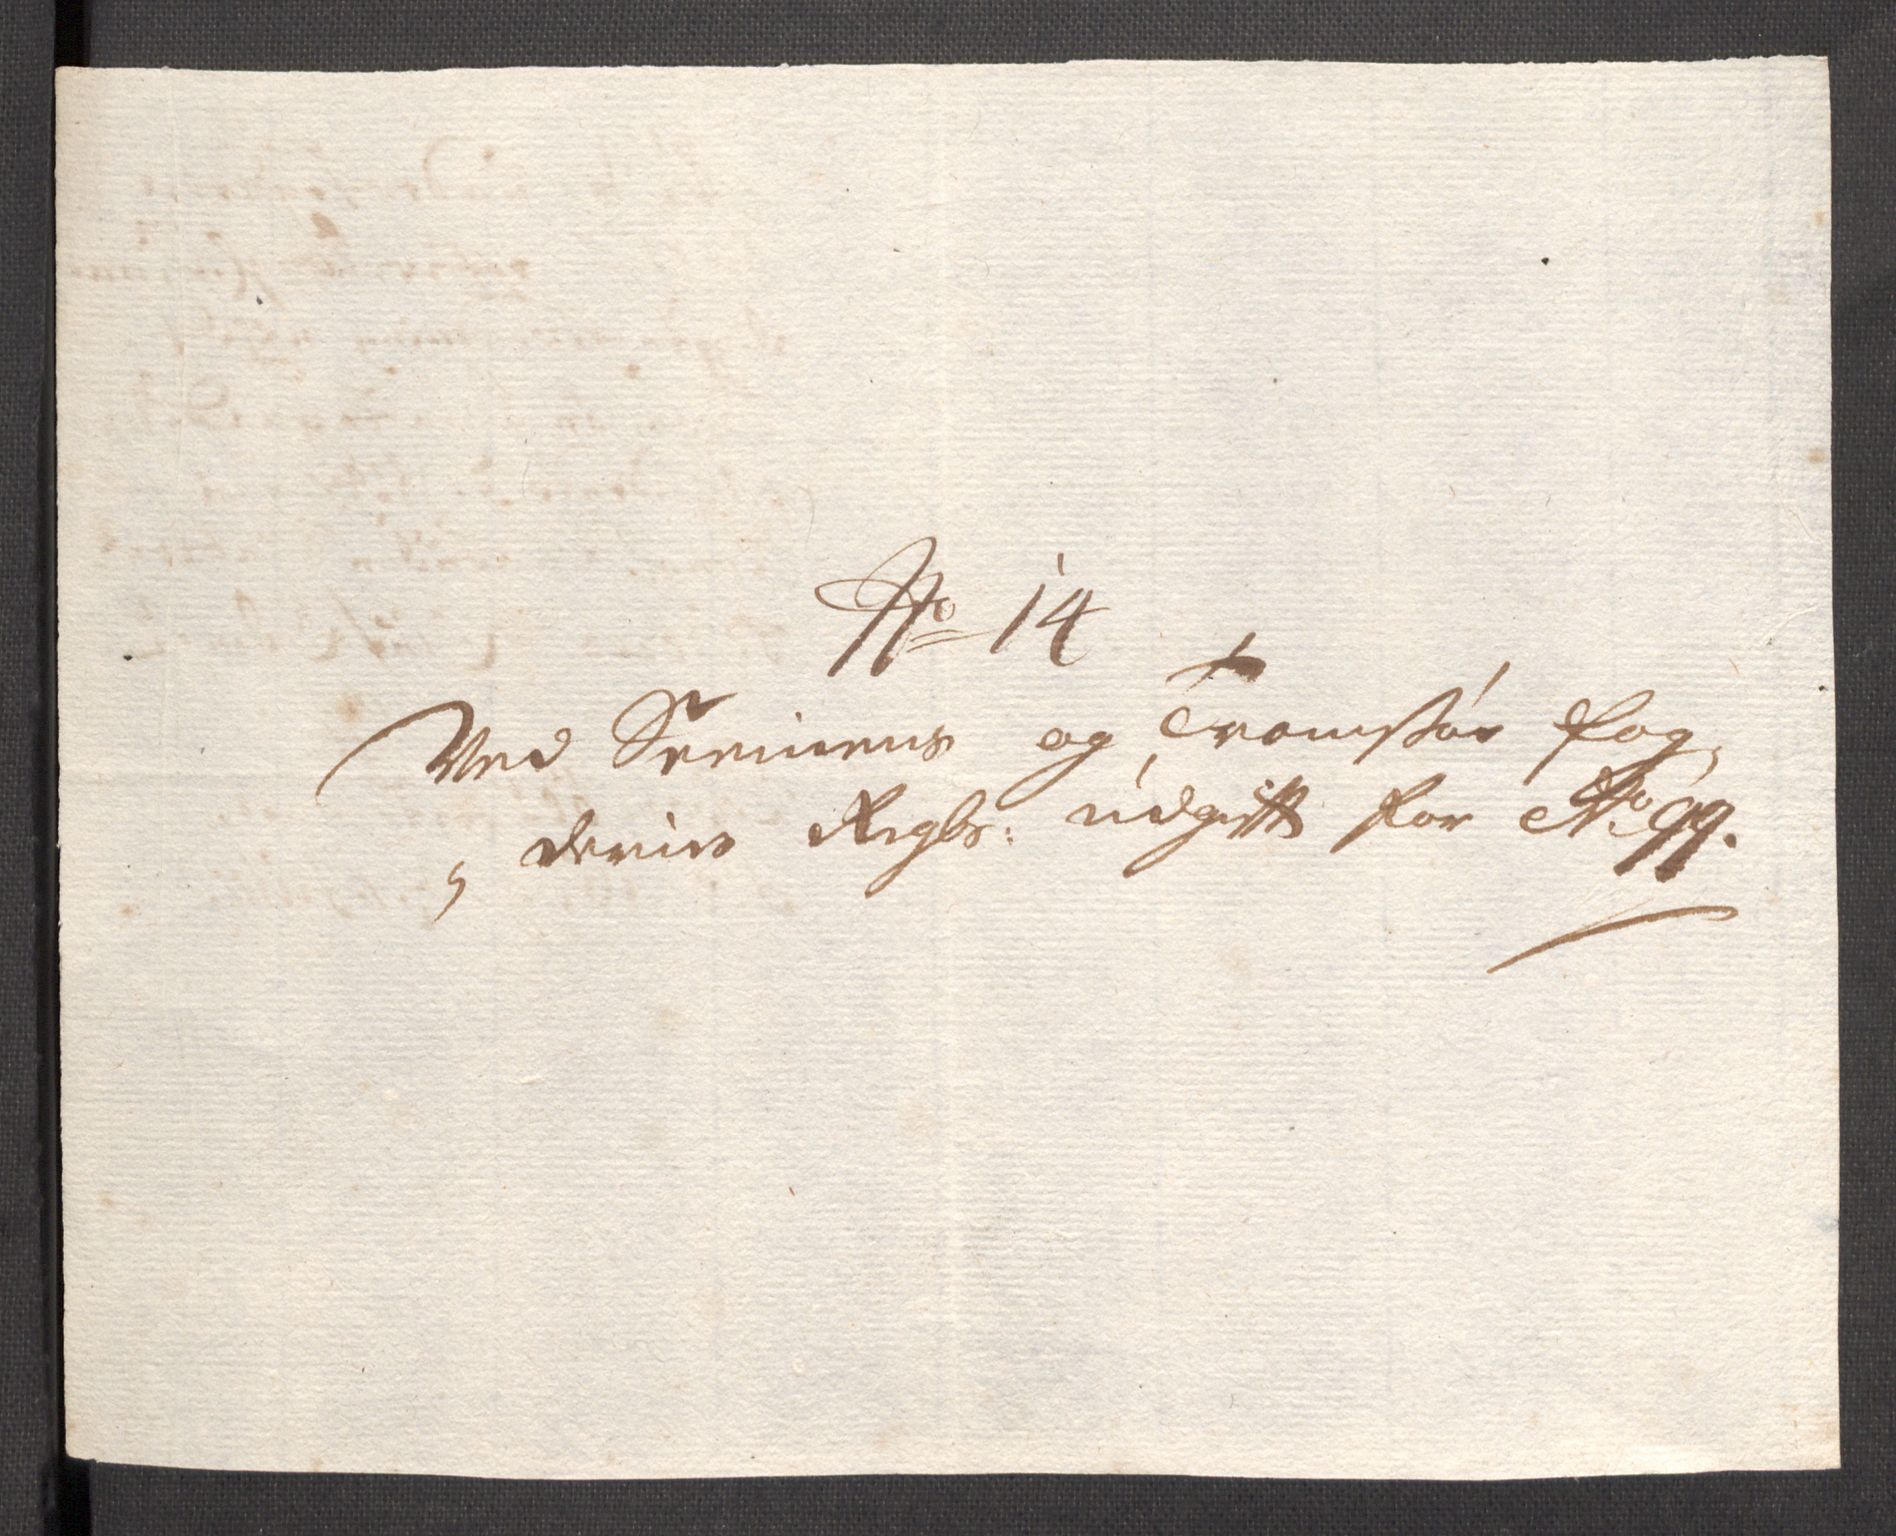 No 14
Ved Senniens og Tromsöes fog,
deries Regls: udgifft for Ao 99.